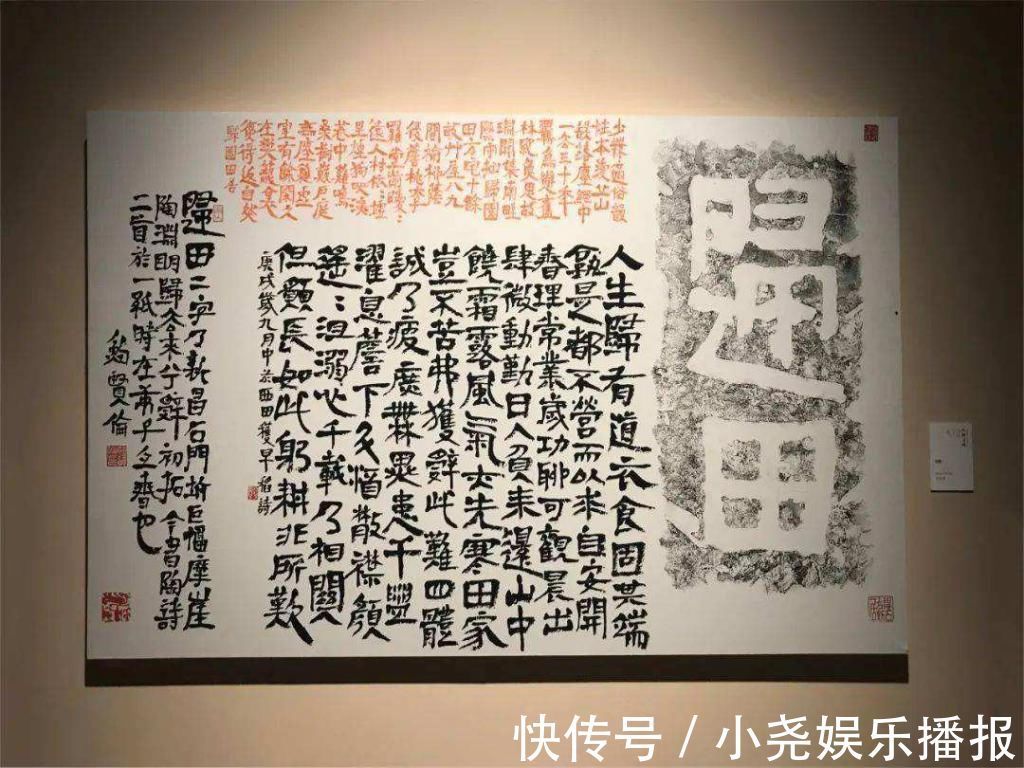 歸田
少無適俗韻
性本愛丘山
誤落塵網中
一去三十年
羈鳥戀舊
林池魚思故
淵開荒南畝
際守拙歸園
田方宅十餘
畝草屋八九
間榆柳蔭
後簷桃李
羅堂前曖曖
遠人村依依墟
里煙狗吠深
巷中雞鳴
桑樹巔戶庭
無塵雜虛
室有餘閒久
在樊籠裏
復得返自然
歸園田居
人生歸有道衣食固其端
孰是都不營而以求自安開
春理常業歲功聊可觀晨出
肆微動勤日入負耒還山中
饒霜露風氣亦先寒田家
豈不苦弗獲辭此難四體
誠乃疲庶無異患干盥
濯息簷下斗酒散襟顏
遙〻沮溺心千載乃相關
但願長如此躬耕非所歎
庚戌歲九月中於西田穫早稻詩
歸田二字乃新昌石門巨幅摩崖
陶淵明歸去來兮辭初拓今書陶詩
二首於一紙時在庚子也
鮑賢倫
快传号 / 小尧娱乐播报